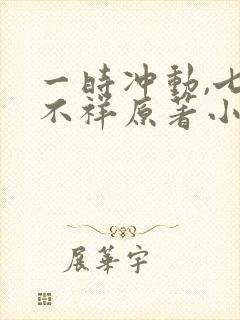 一時冲動,七
不祥原著小
展華宇